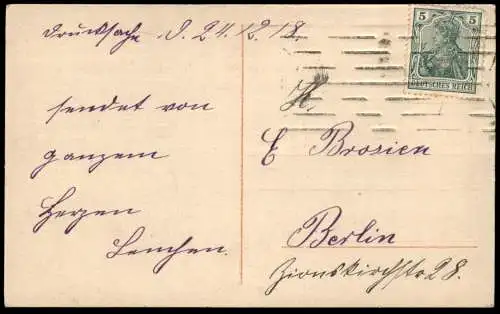 Drucksache d. 24.12.18.
sendet von
ganzem
Herzen
Lenchen.
5 5
DEUTSCHES REICH
H.
E Brosien
Berlin
Zionskirchstr 28.